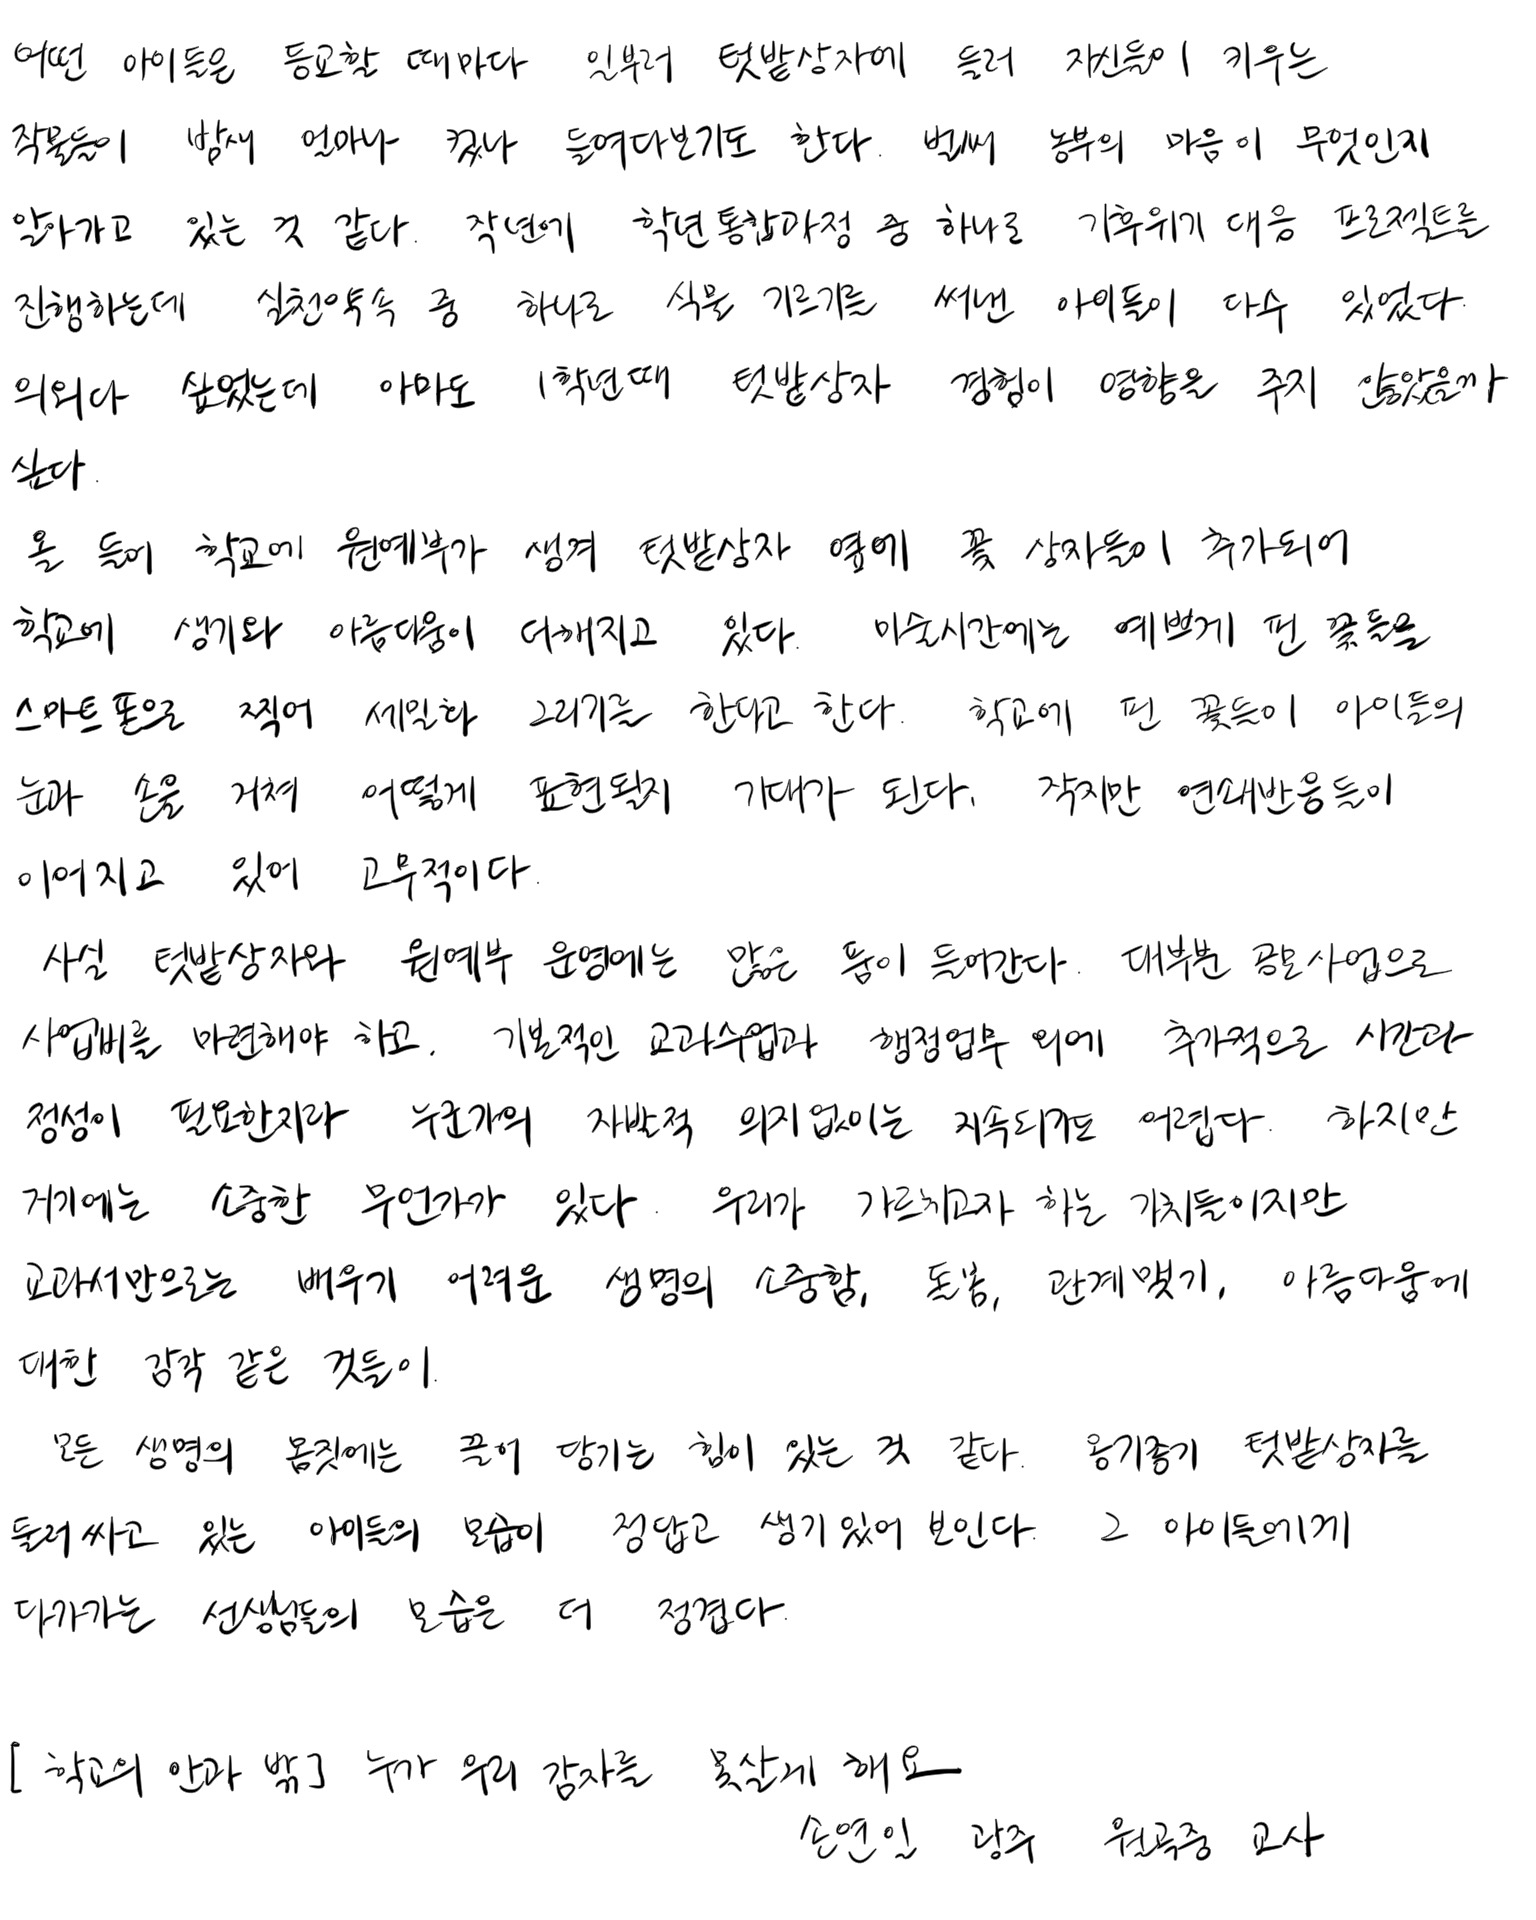 어떤 아이들은 등교할 때마다 일부러 텃밭상자에 들러 자신들이 키우는
작물들이 밤새 얼마나 컸나 들여다보기도 한다. 벌써 농부의 마음이 무엇인지
알아가고 있는 것 같다. 작년에 학년통합과정 중 하나로 기후위기 대응 프로젝트를
진행하는데 실천약속 중 하나로 식물 기르기를 써낸 아이들이 다수 있었다.
의외다 싶었는데 아마도 1학년때 텃밭상자 경험이 영향을 주지 않았을까
싶다.
올 들어 학교에 원예부가 생겨 텃밭상자 옆에 꽃 상자들이 추가되어
학교에 생기와 아름다움이 더해지고 있다. 미술시간에는 예쁘게 핀 꽃들을
스마트폰으로 찍어 세밀화 그리기를 한다고 한다. 학교에 핀 꽃들이 아이들의
눈과 손을 거쳐 어떻게 표현될지 기대가 된다. 작지만 연쇄반응들이
이어지고 있어 고무적이다.
사실 텃밭상자와 원예부 운영에는 많은 품이 들어간다. 대부분 공모사업으로
사업비를 마련해야 하고, 기본적인 교과수업과 행정업무 외에 추가적으로 시간과
정성이 필요한지라 누군가의 자발적 의지없이는 지속되기도 어렵다. 하지만
거기에는 소중한 무언가가 있다. 우리가 가르치고자 하는 가치들이지만
교과서만으로는 배우기 어려운 생명의 소중함, 돌봄, 관계맺기, 아름다움에
대한 감각 같은 것들이.
모든 생명의 몸짓에는 끌어 당기는 힘이 있는 것 같다. 옹기종기 텃밭상자를
둘러싸고 있는 아이들의 모습이 정답고 생기있어 보인다. 그 아이들에게
다가가는 선생님들의 모습은 더 정겹다.
[학교의 안과 밖] 누가 우리 감자를 못살게 해요
손연일 광주 월곡중 교사